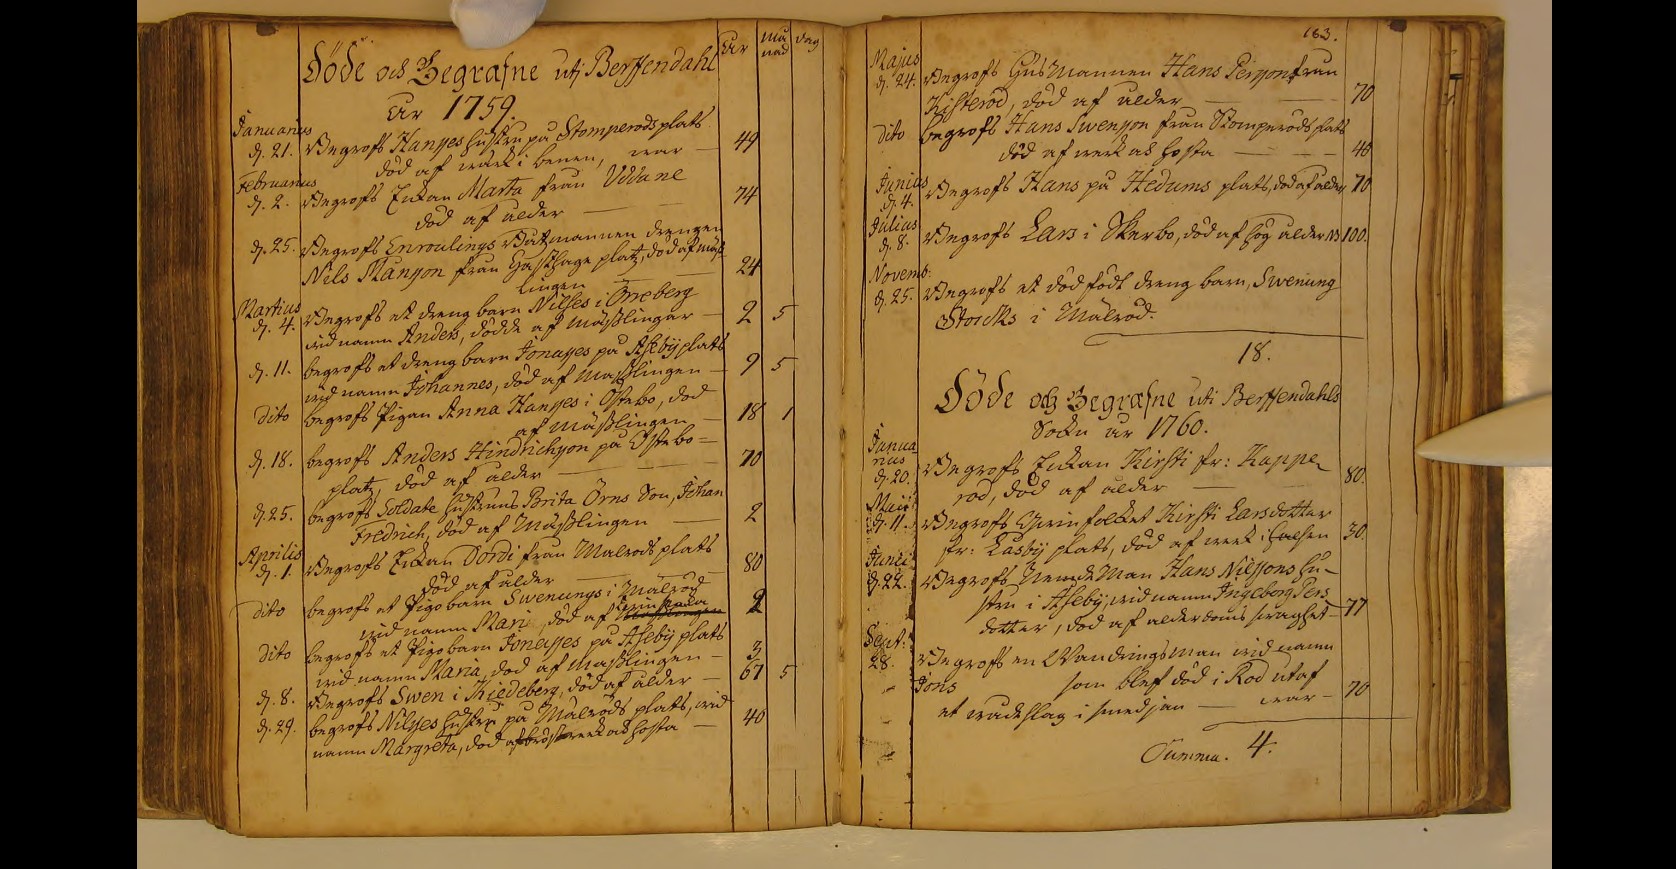 Döde och Begrafne uti Berffendahl
År 1759.
År må nad dag
Januarius
d. 21. Begrofs Hanses hustru på Stomperöds plats
död af wärk i benen, war 49
Februarius
d. 2. Begrofs Enkan Marta från Uddane
död af ålder 74
d. 25. Begrofs Enroulings Båtzmannen drengen
Nils Månson från Gaskhage platz, död af mäss-
lingen 24
Martius
d. 4. Begrofs et dreng barn Nilses i Örreberg
wid namn Anders, dödde af mässlingar 2 5
d. 11. begrofs et dreng barn Jonases på Åsebÿ plats
wid namn Johannes, död af Mässlingen 9 5
dito begrofs Pigan Anna Hanses i Östebo, död
af mässlingen 18 1
d. 18. begrofs Anders Hindrichson på Östebo=
platz, död af ålder 70
d. 25. begrofs Soldate hustruns Brita Örns Son, Johan
Fredrich, död af Mässlingen 2
Aprilis
d. 1. Begrofs Enkan Dordi från Mälröds plats
död af ålder 80
dito begrofs et Pigobarn Swenungs i Mälröd
wid namn Maria, död af 2
dito begrofs et Pigobarn Jonases på Åsebÿ plats
wid namn Maria, död af mässlingen 3
d. 8. Begrofs Swen i Kiedeberg, död af ålder 67 5
d. 29. begrofs Nilses hustru på Mälröds plats, wid
namn Margreta, död af bröstwerk och hosta 40
183.
Majus
d. 24. Begrofs Husmannen Hans Persson från
Kisteröd, död af ålder 70
dito begrofs Hans Swenson från Stomperöds plats
död af werk och hosta 40
Junius
d. 4. Begrofs Hans på Hedums plats, död af ålder 70
Julius
d. 8. Begrofs Lars i Skerbo, död af hög ålder 100.
Novemb:
d. 25. Begrofs et dödfödt dreng barn, Swenung
Storcks i Mälröd.
18.
Döde och Begrafne uti Berffendahls
Sockn år 1760.
Janua
rius
d. 20. Begrofs Enkan Kirsti fr: Kappe
röd, död af ålder 80.
Maii
d. 11. Begrofs Qwinfolcket Kirsti Larsdotter
fr: Låsbÿ plats, död af werk i halsen 30.
Junii
d. 22. Begrofs Nemdeman Hans Nilssons hu-
stru i Åsebÿ, wid namn Ingeborg Pers
dotter, död af ålderdoms swaghet 77
Sept:
28. Begrofs en Wandringsman wid namn
Jöns som blef död i Röd utaf
et wådeslag i smedjan war 70
Summa. 4.